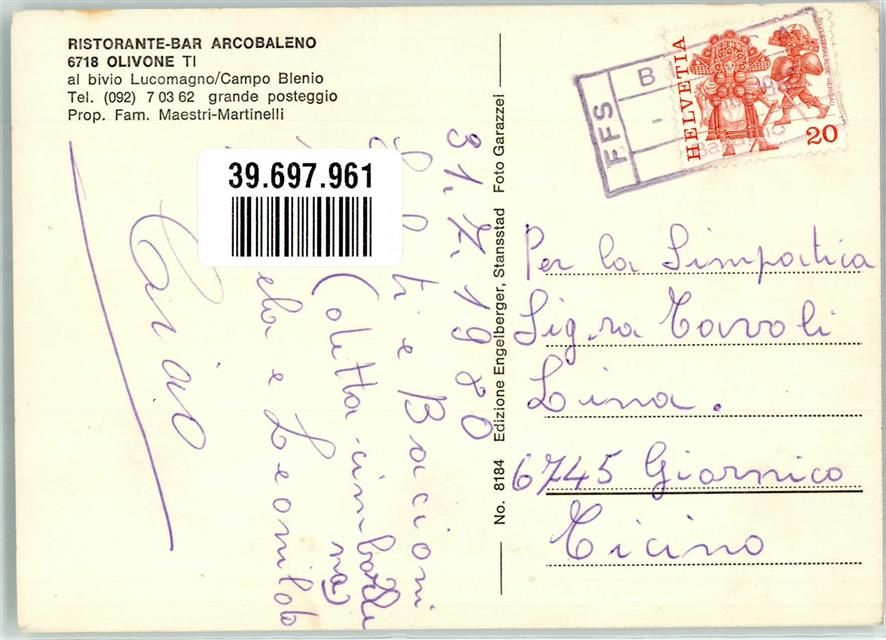 RISTORANTE-BAR ARCOBALENO
6718 OLIVONE TI
al bivio Lucomagno/Campo Blenio
Tel. (092) 7 03 62 grande posteggio
Prop. Fam. Maestri-Martinelli
39.697.961
31.7.1980
e Bacioni
(Coletta
e
Ciao
No. 8184 Edizione Engelberger, Stansstad Foto Garazzei
FFS
B
HELVETIA
20
Per la Simpatica
Sig.ra Tavoli
Lina.
6745 Giornico
Ticino